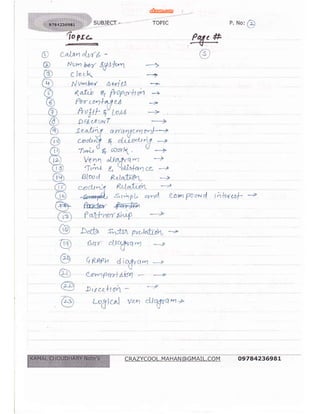 9784236981 SUBJECT - TOPIC P. No: 2
Topic Page #
1 Calandure - 2
2 Number System →
3 Clock →
4 Number Series →
5 Ratio & Proportion →
6 Percentages →
7 Profit & Loss →
8 DISCOUNT →
9 Seating arrangement →
10 coding & decoding →
11 Time & Work. →
12 Venn diagram →
13 Time & distance →
14 Blood Relation →
15 coding Relation →
16 Simple and Compound interest →
17 Partnership →
18 Data
19 Bar diagram →
20 GRAPH diagram →
21 Comparision - →
22 Direction - →
23 Logical ven diagram →
KAMAL CHOUDHARY Note's CRAZYCOOL.MAHAN@GMAIL.COM 09784236981